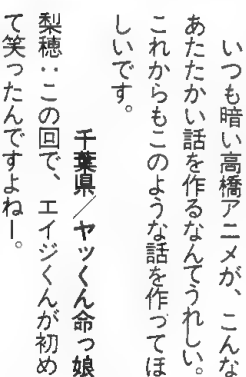 いつも暗い高橋アニメが、こんな
あたたかい話を作るなんてうれしい。
これからもこのような話を作ってほ
しいです。
千葉県／ヤッくん命っ娘
梨穂：この回で、エイジくんが初め
て笑ったんですよねー。